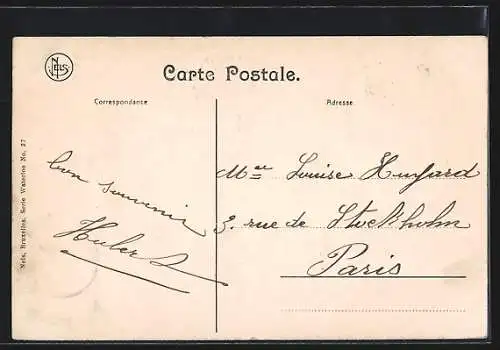 NELS
Carte Postale.
Correspondance
Adresse
Nels, Bruxelles. Serie Waterloo No. 27
bon souvenir
Hubert
Mme Louise
3. rue de Stockholm
Paris